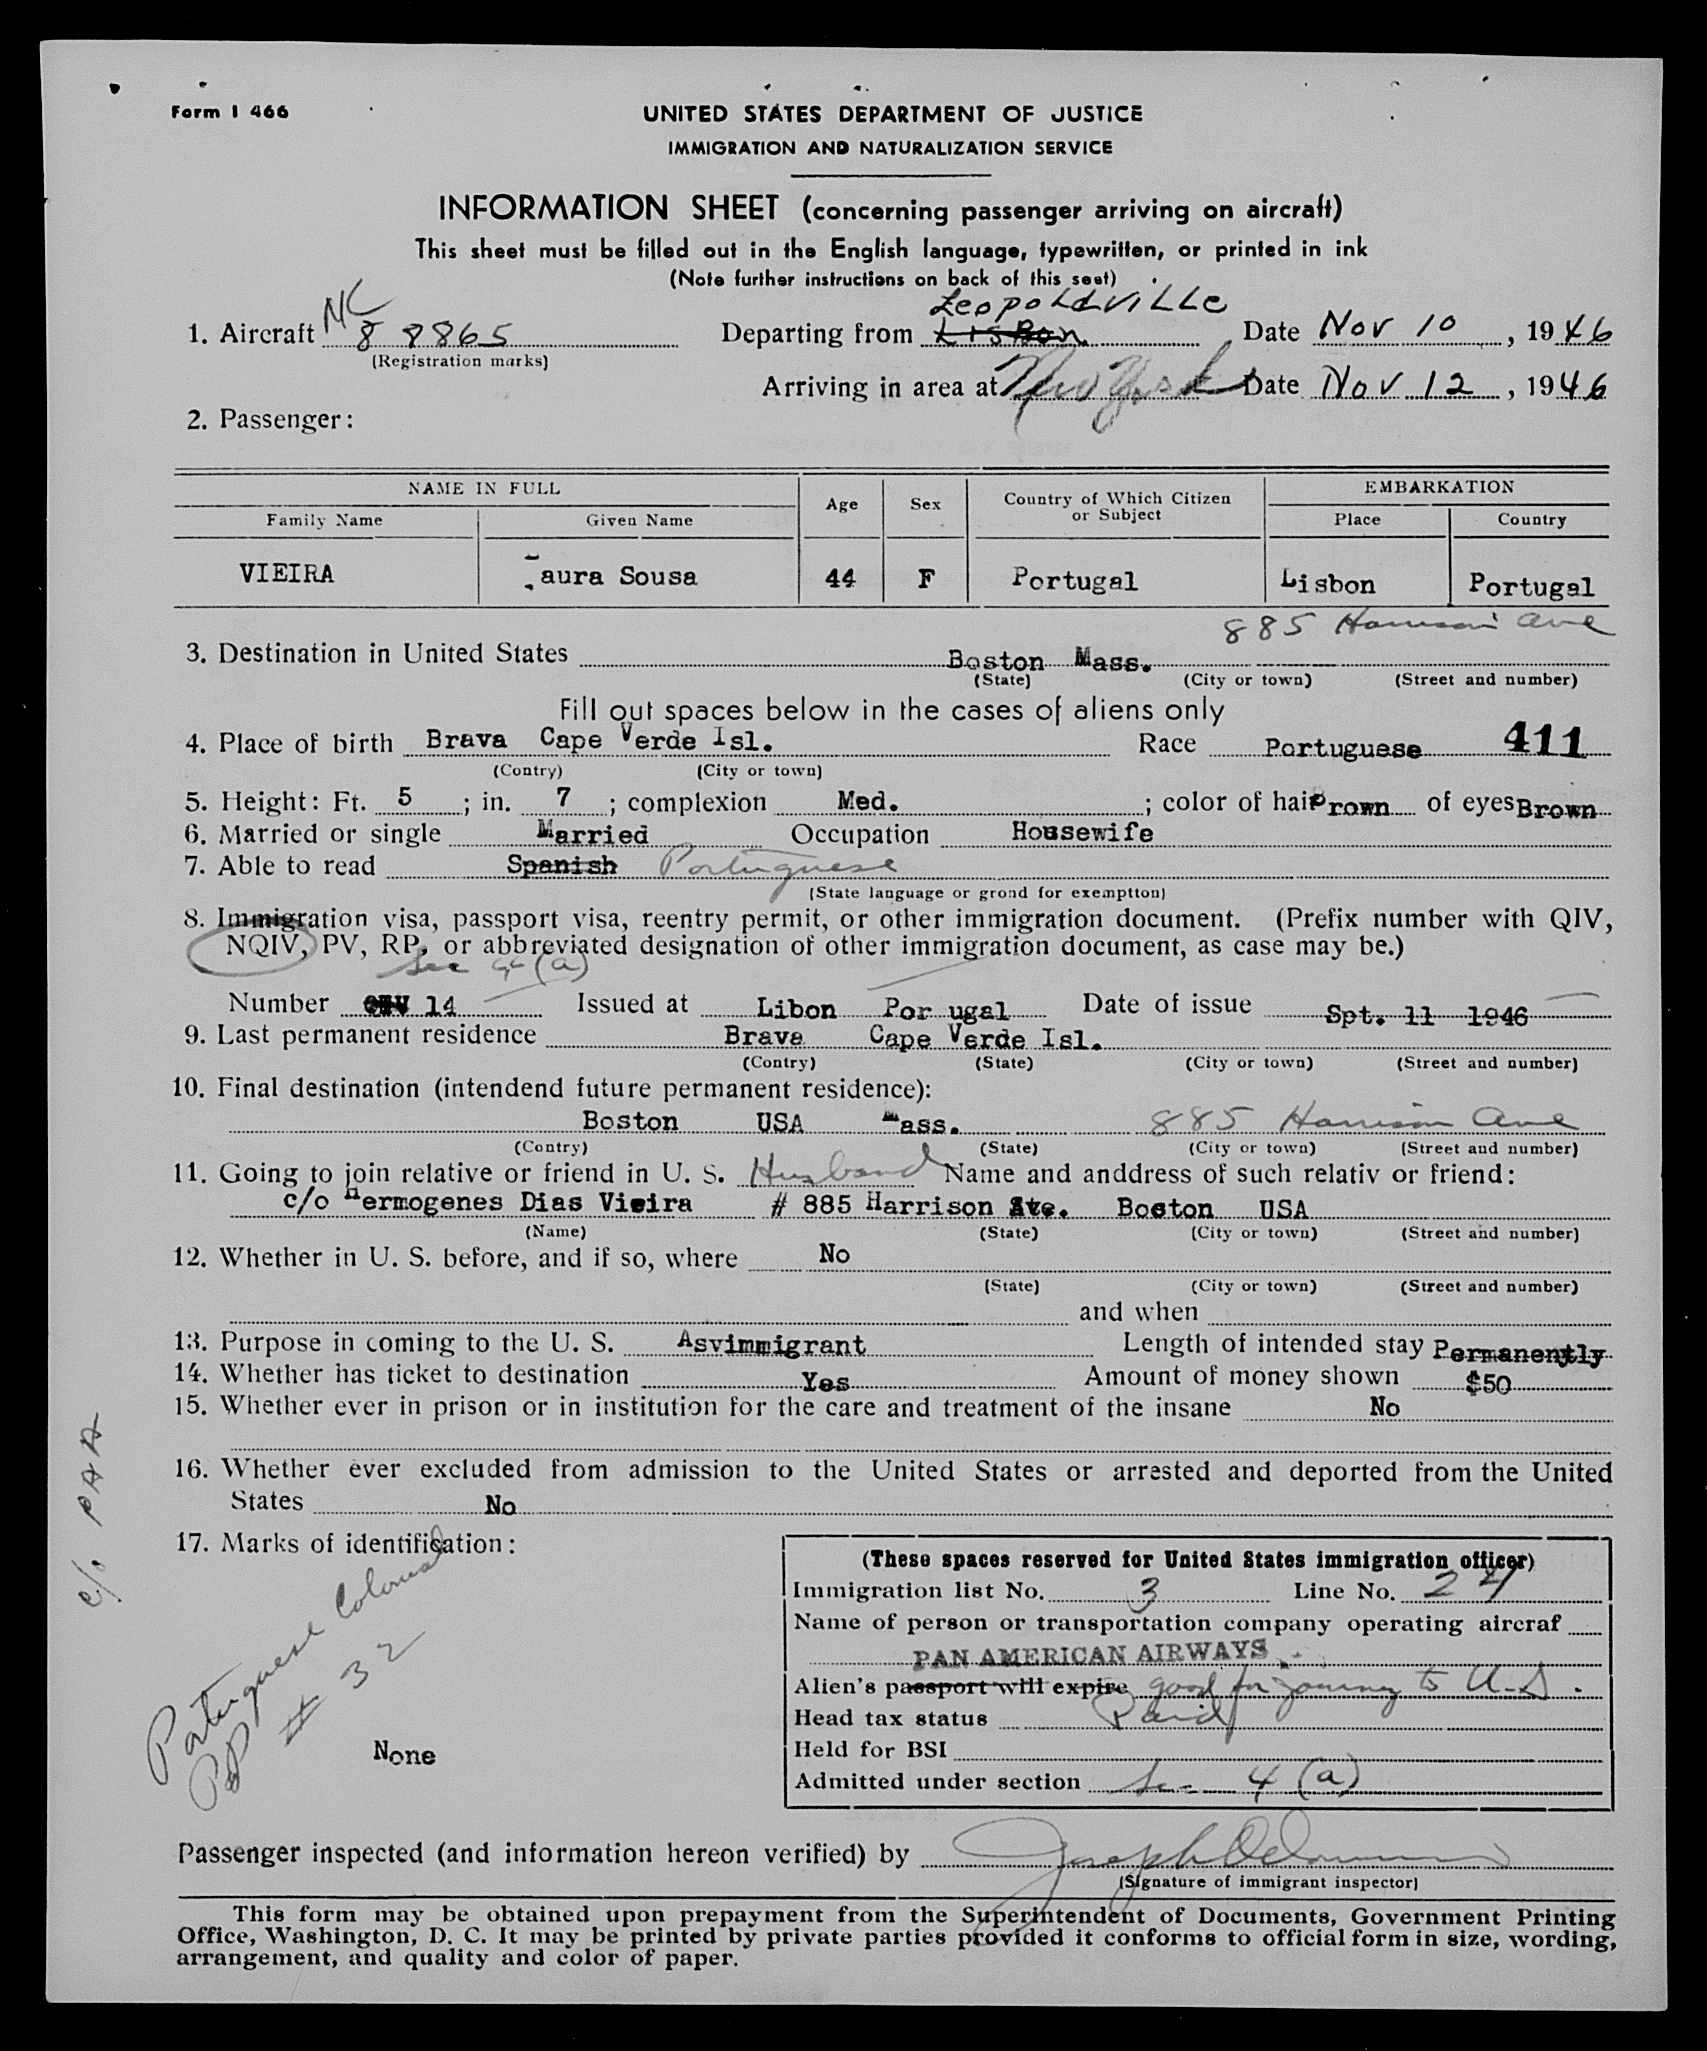 Form I 466
UNITED STATES DEPARTMENT OF JUSTICE
IMMIGRATION AND NATURALIZATION SERVICE
INFORMATION SHEET (concerning passenger arriving on aircraft)
This sheet must be filled out in the English language, typewritten, or printed in ink
(Note further instructions on back of this seet)
1. Aircraft NC 88865 Departing from Lisbon Leopoldville Date Nov 10, 1946
(Registration marks)
Arriving in area at New York Date Nov 12, 1946
2. Passenger:
NAME IN FULL Age Sex Country of Which Citizen or Subject EMBARKATION
Family Name Given Name Place Country
VIEIRA Laura Sousa 44 F Portugal Lisbon Portugal
885 Harrison Ave
3. Destination in United States Boston Mass.
(State) (City or town) (Street and number)
Fill out spaces below in the cases of aliens only
4. Place of birth Brava Cape Verde Isl. Race Portuguese 411
(Contry) (City or town)
5. Height: Ft. 5 ; in. 7 ; complexion Med. ; color of hair Brown of eyes Brown
6. Married or single Married Occupation Housewife
7. Able to read Spanish Portuguese
(State language or grond for exemptton)
8. Immigration visa, passport visa, reentry permit, or other immigration document. (Prefix number with QIV,
NQIV, PV, RP, or abbreviated designation of other immigration document, as case may be.)
Sec 4 (a)
Number 14 Issued at Libon Por ugal Date of issue Spt. 11 1946
9. Last permanent residence Brava Cape Verde Isl.
(Contry) (State) (City or town) (Street and number)
10. Final destination (intendend future permanent residence):
Boston USA Mass. 885 Harrison Ave
(Contry) (State) (City or town) (Street and number)
11. Going to join relative or friend in U. S. Husband Name and anddress of such relativ or friend:
c/o Hermogenes Dias Vieira # 885 Harrison Ave. Boston USA
(Name) (State) (City or town) (Street and number)
12. Whether in U. S. before, and if so, where No
(State) (City or town) (Street and number)
and when
13. Purpose in coming to the U. S. Asvimmigrant Length of intended stay Permanently
14. Whether has ticket to destination Yes Amount of money shown $50
15. Whether ever in prison or in institution for the care and treatment of the insane No
16. Whether ever excluded from admission to the United States or arrested and deported from the United
States No
17. Marks of identification:
None
Portuguese Colonial
PP # 32
c/o PAA
(These spaces reserved for United States immigration officer)
Immigration list No. 3 Line No. 24
Name of person or transportation company operating aircraf
PAN AMERICAN AIRWAYS
Alien's passport will expire good for journey to U.S.
Head tax status Paid
Held for BSI
Admitted under section Sec 4 (a)
Passenger inspected (and information hereon verified) by
(Signature of immigrant inspector)
This form may be obtained upon prepayment from the Superintendent of Documents, Government Printing
Office, Washington, D. C. It may be printed by private parties provided it conforms to official form in size, wording,
arrangement, and quality and color of paper.